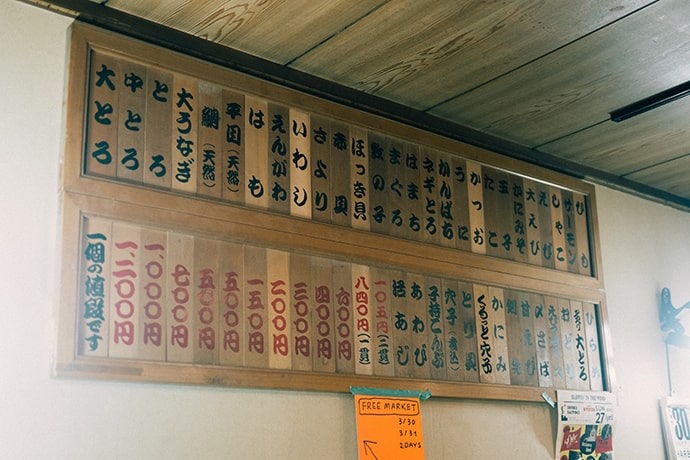 ひも
サーモン
しゃこ
えび
大えび
かにみそ
玉子
たこ
かつお
うに
かんぱち
ネギとろ
はまち
まぐろ
数の子
ほっき貝
赤貝
さより
いわし
えんがわ
はも
(天然)
鯛(天然)
大うなぎ
とろ
中とろ
大とろ
ひらめ
炙り大とろ
おどり
〆さば
甘えび
穴子
かに
とり貝
穴子(煮込)
子持こんぶ
あわび
活あじ
一〇五円(二貫)
八四〇円(二貫)
六〇〇円
四〇〇円
三〇〇円
二〇〇円
一五〇円
五〇〇円
五〇〇円
七〇〇円
一、〇〇〇円
一、二〇〇円
一個の値段です
FREE MARKET
3/30
3/31
2DAYS
27
30